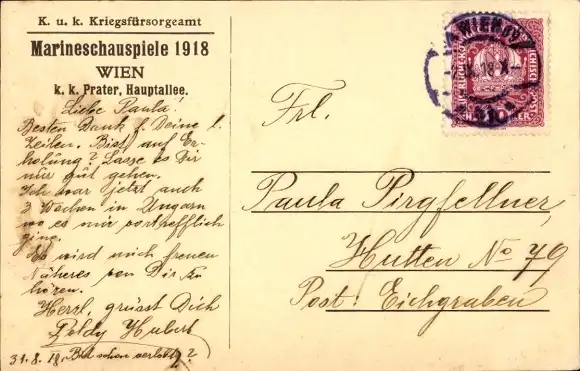 K. u. k. Kriegsfürsorgeamt
Marineschauspiele 1918
WIEN
k. k. Prater, Hauptallee.
Liebe Paula!
Besten Dank f. Deine l.
Zeilen. Bist auf Er-
holung? Lasse es Dir
nur gut gehen.
Ich war jetzt auch
3 Wochen in Ungarn
wo es mir vortrefflich
ging.
Es wird mich freuen
Näheres von Dir zu
hören.
Herzl. grüsst Dich
Poldy Hubert
31.8.18. Bist schon verlobt?
WIEN
10
Frl.
Paula Pirgfellner,
Hutten No 79
Post: Eichgraben